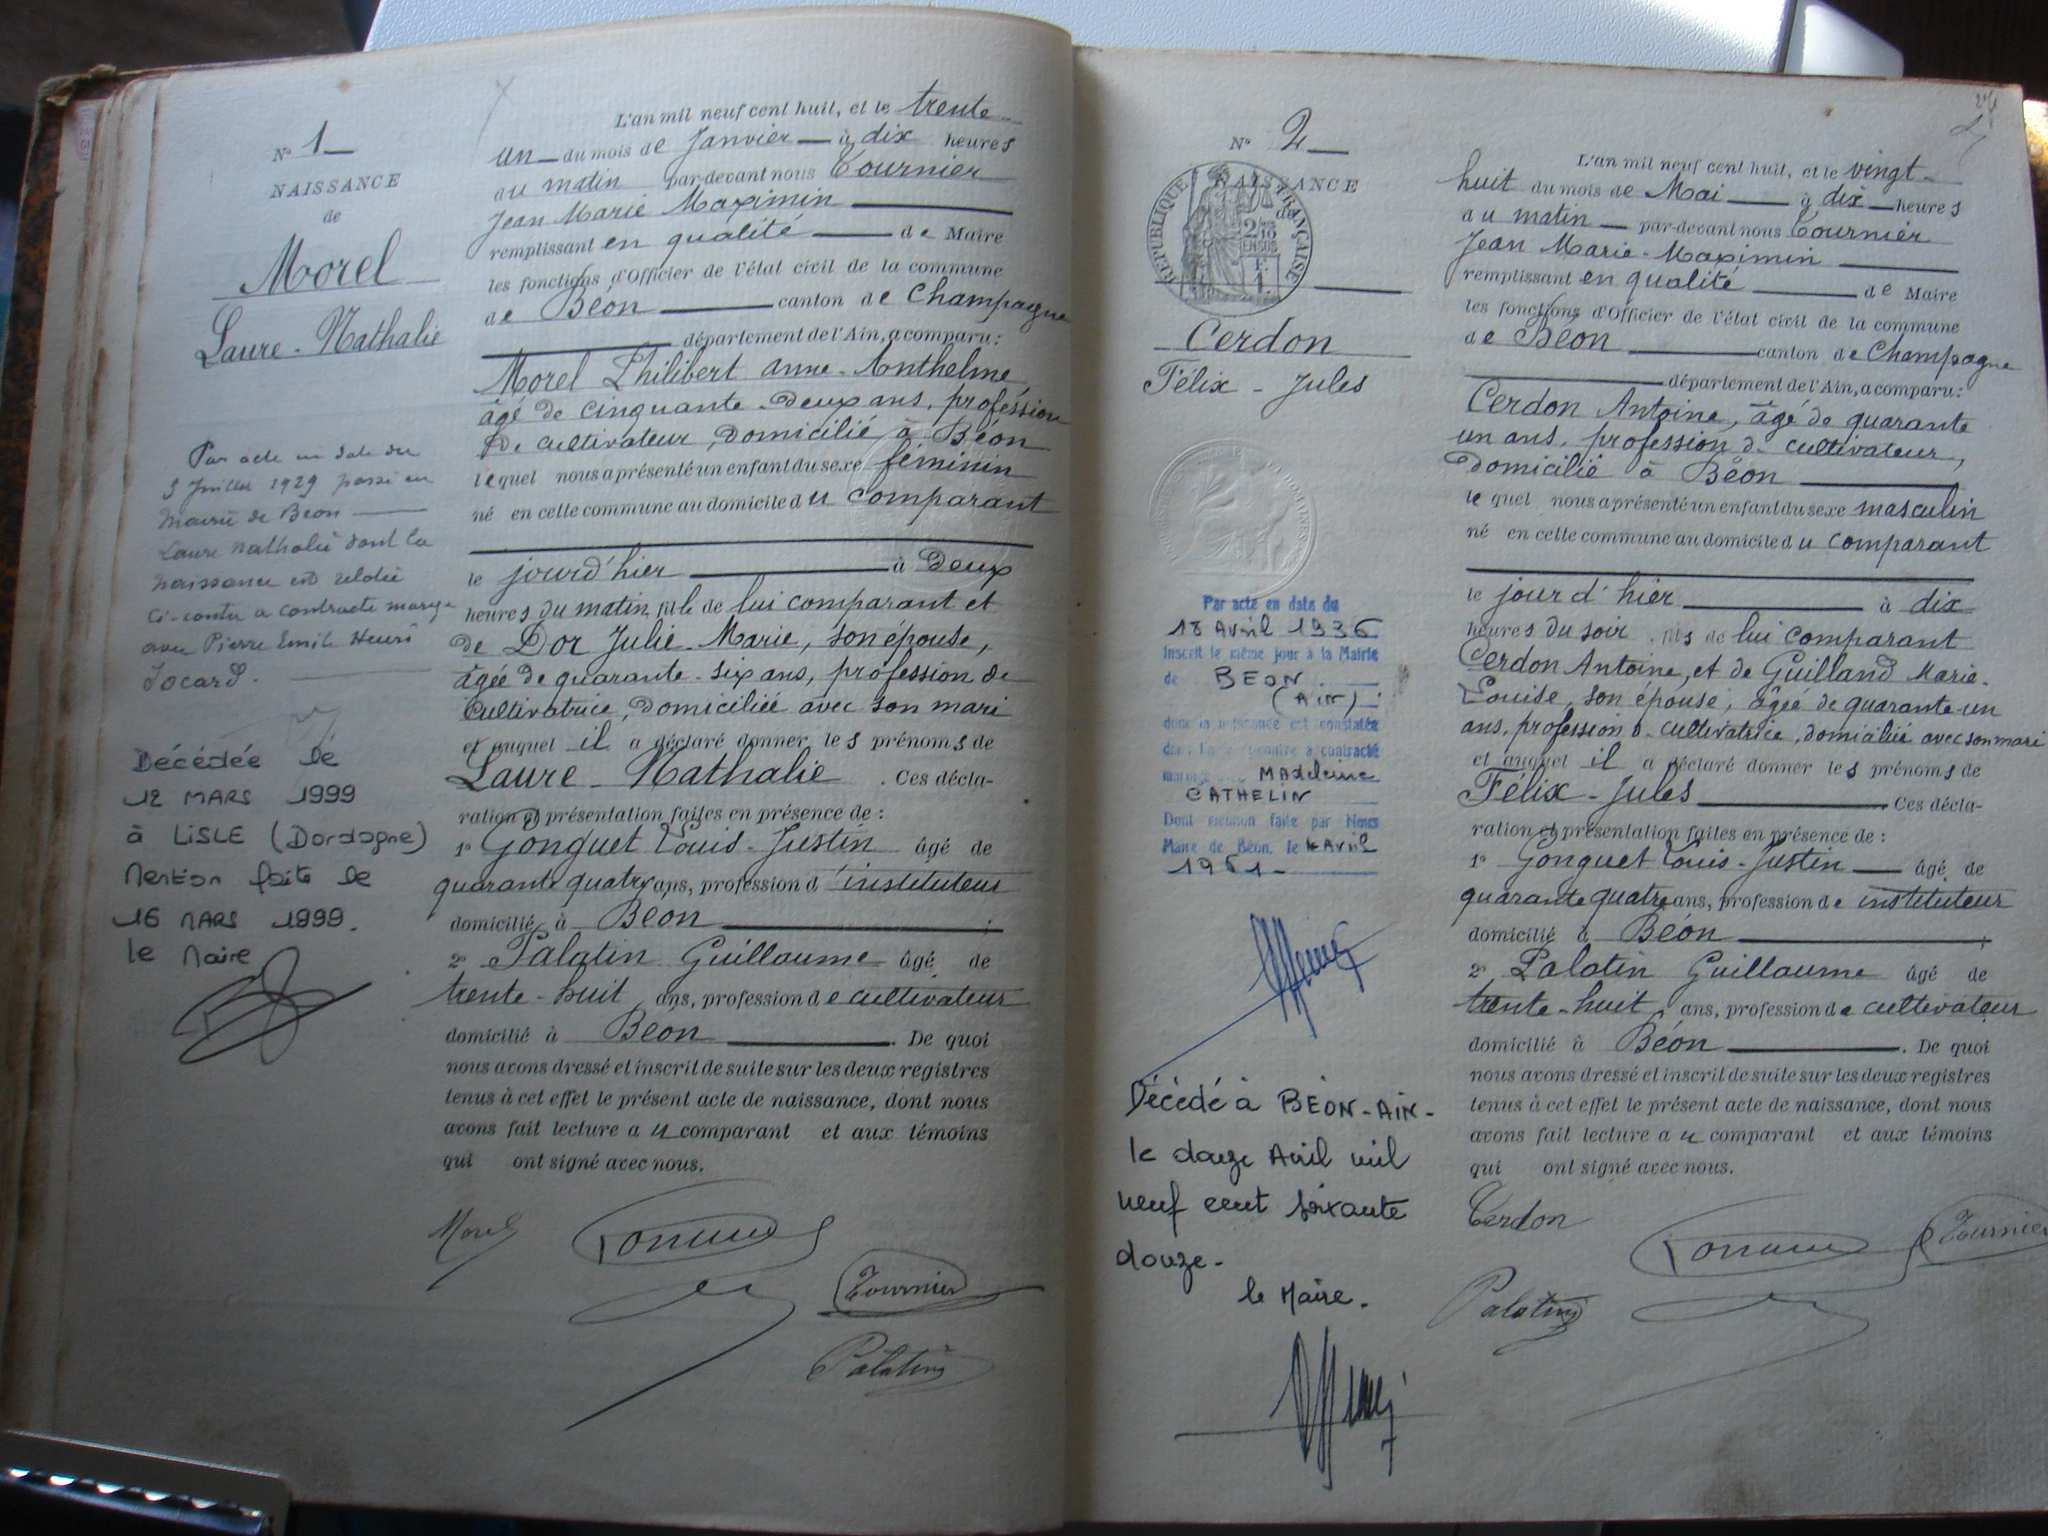 N° 1
NAISSANCE
de
Morel
Laure-Nathalie
Par acte en date du
5 Juillet 1929 passé en
mairie de Béon
Laure Nathalie dont la
naissance est relatée
ci-contre a contracté mariage
avec Pierre Emile Henri
Jocard.
Décédée le
12 MARS 1999
à LISLE (Dordogne)
Mention faite le
16 MARS 1999.
le Maire
L'an mil neuf cent huit, et le trente-
un du mois de Janvier à dix heures
du matin par-devant nous Tournier
Jean Marie Maximin
remplissant en qualité de Maire
les fonctions d'Officier de l'état civil de la commune
de Béon canton de Champagne
département de l'Ain, a comparu:
Morel Philibert Anne-Anthelme,
âgé de cinquante-deux ans, profession
de cultivateur, domicilié à Béon
lequel nous a présenté un enfant du sexe féminin
né en cette commune au domicile du comparant
le jourd'hier à deux
heures du matin, fille de lui comparant et
de Dor Julie-Marie, son épouse,
âgée de quarante-six ans, profession de
cultivatrice, domiciliée avec son mari
et auquel il a déclaré donner les prénoms de
Laure-Nathalie. Ces décla-
ration et présentation faites en présence de:
1° Gonguet Louis-Justin âgé de
quarante quatre ans, profession d'instituteur
domicilié à Béon;
2° Palatin Guillaume âgé de
trente-huit ans, profession de cultivateur
domicilié à Béon. De quoi
nous avons dressé et inscrit de suite sur les deux registres
tenus à cet effet le présent acte de naissance, dont nous
avons fait lecture au comparant et aux témoins
qui ont signé avec nous.
Morel
Tournier
Palatin
N° 2
NAISSANCE
de
RÉPUBLIQUE FRANÇAISE
2/10
EN SUS
Cerdon
Félix-Jules
Par acte en date du
18 Avril 1936
inscrit le même jour à la Mairie
de BEON
(AIN)
dont la naissance est constatée
dans l'acte ci-contre a contracté
mariage avec MAdeleine
CATHELIN
Dont mention faite par Nous
Maire de Béon, le 4 Avril
1961-
Décédé à BÉON-AIN-
le douze Avril mil
neuf cent soixante
douze-
le Maire.
L'an mil neuf cent huit, et le vingt-
huit du mois de Mai à dix heures
du matin par-devant nous Tournier
Jean Marie-Maximin
remplissant en qualité de Maire
les fonctions d'Officier de l'état civil de la commune
de Béon canton de Champagne
département de l'Ain, a comparu:
Cerdon Antoine, âgé de quarante
un ans, profession de cultivateur,
domicilié à Béon
lequel nous a présenté un enfant du sexe masculin
né en cette commune au domicile du comparant
le jour d'hier à dix
heures du soir, fils de lui comparant
Cerdon Antoine, et de Guilland Marie-
Louise, son épouse, âgée de quarante-un
ans, profession de cultivatrice, domiciliée avec son mari
et auquel il a déclaré donner les prénoms de
Félix-Jules Ces décla-
ration et présentation faites en présence de:
1° Gonguet Louis-Justin âgé de
quarante quatre ans, profession de instituteur
domicilié à Béon;
2° Palatin Guillaume âgé de
trente-huit ans, profession de cultivateur
domicilié à Béon. De quoi
nous avons dressé et inscrit de suite sur les deux registres
tenus à cet effet le présent acte de naissance, dont nous
avons fait lecture au comparant et aux témoins
qui ont signé avec nous.
Cerdon
Tournier
Palatin